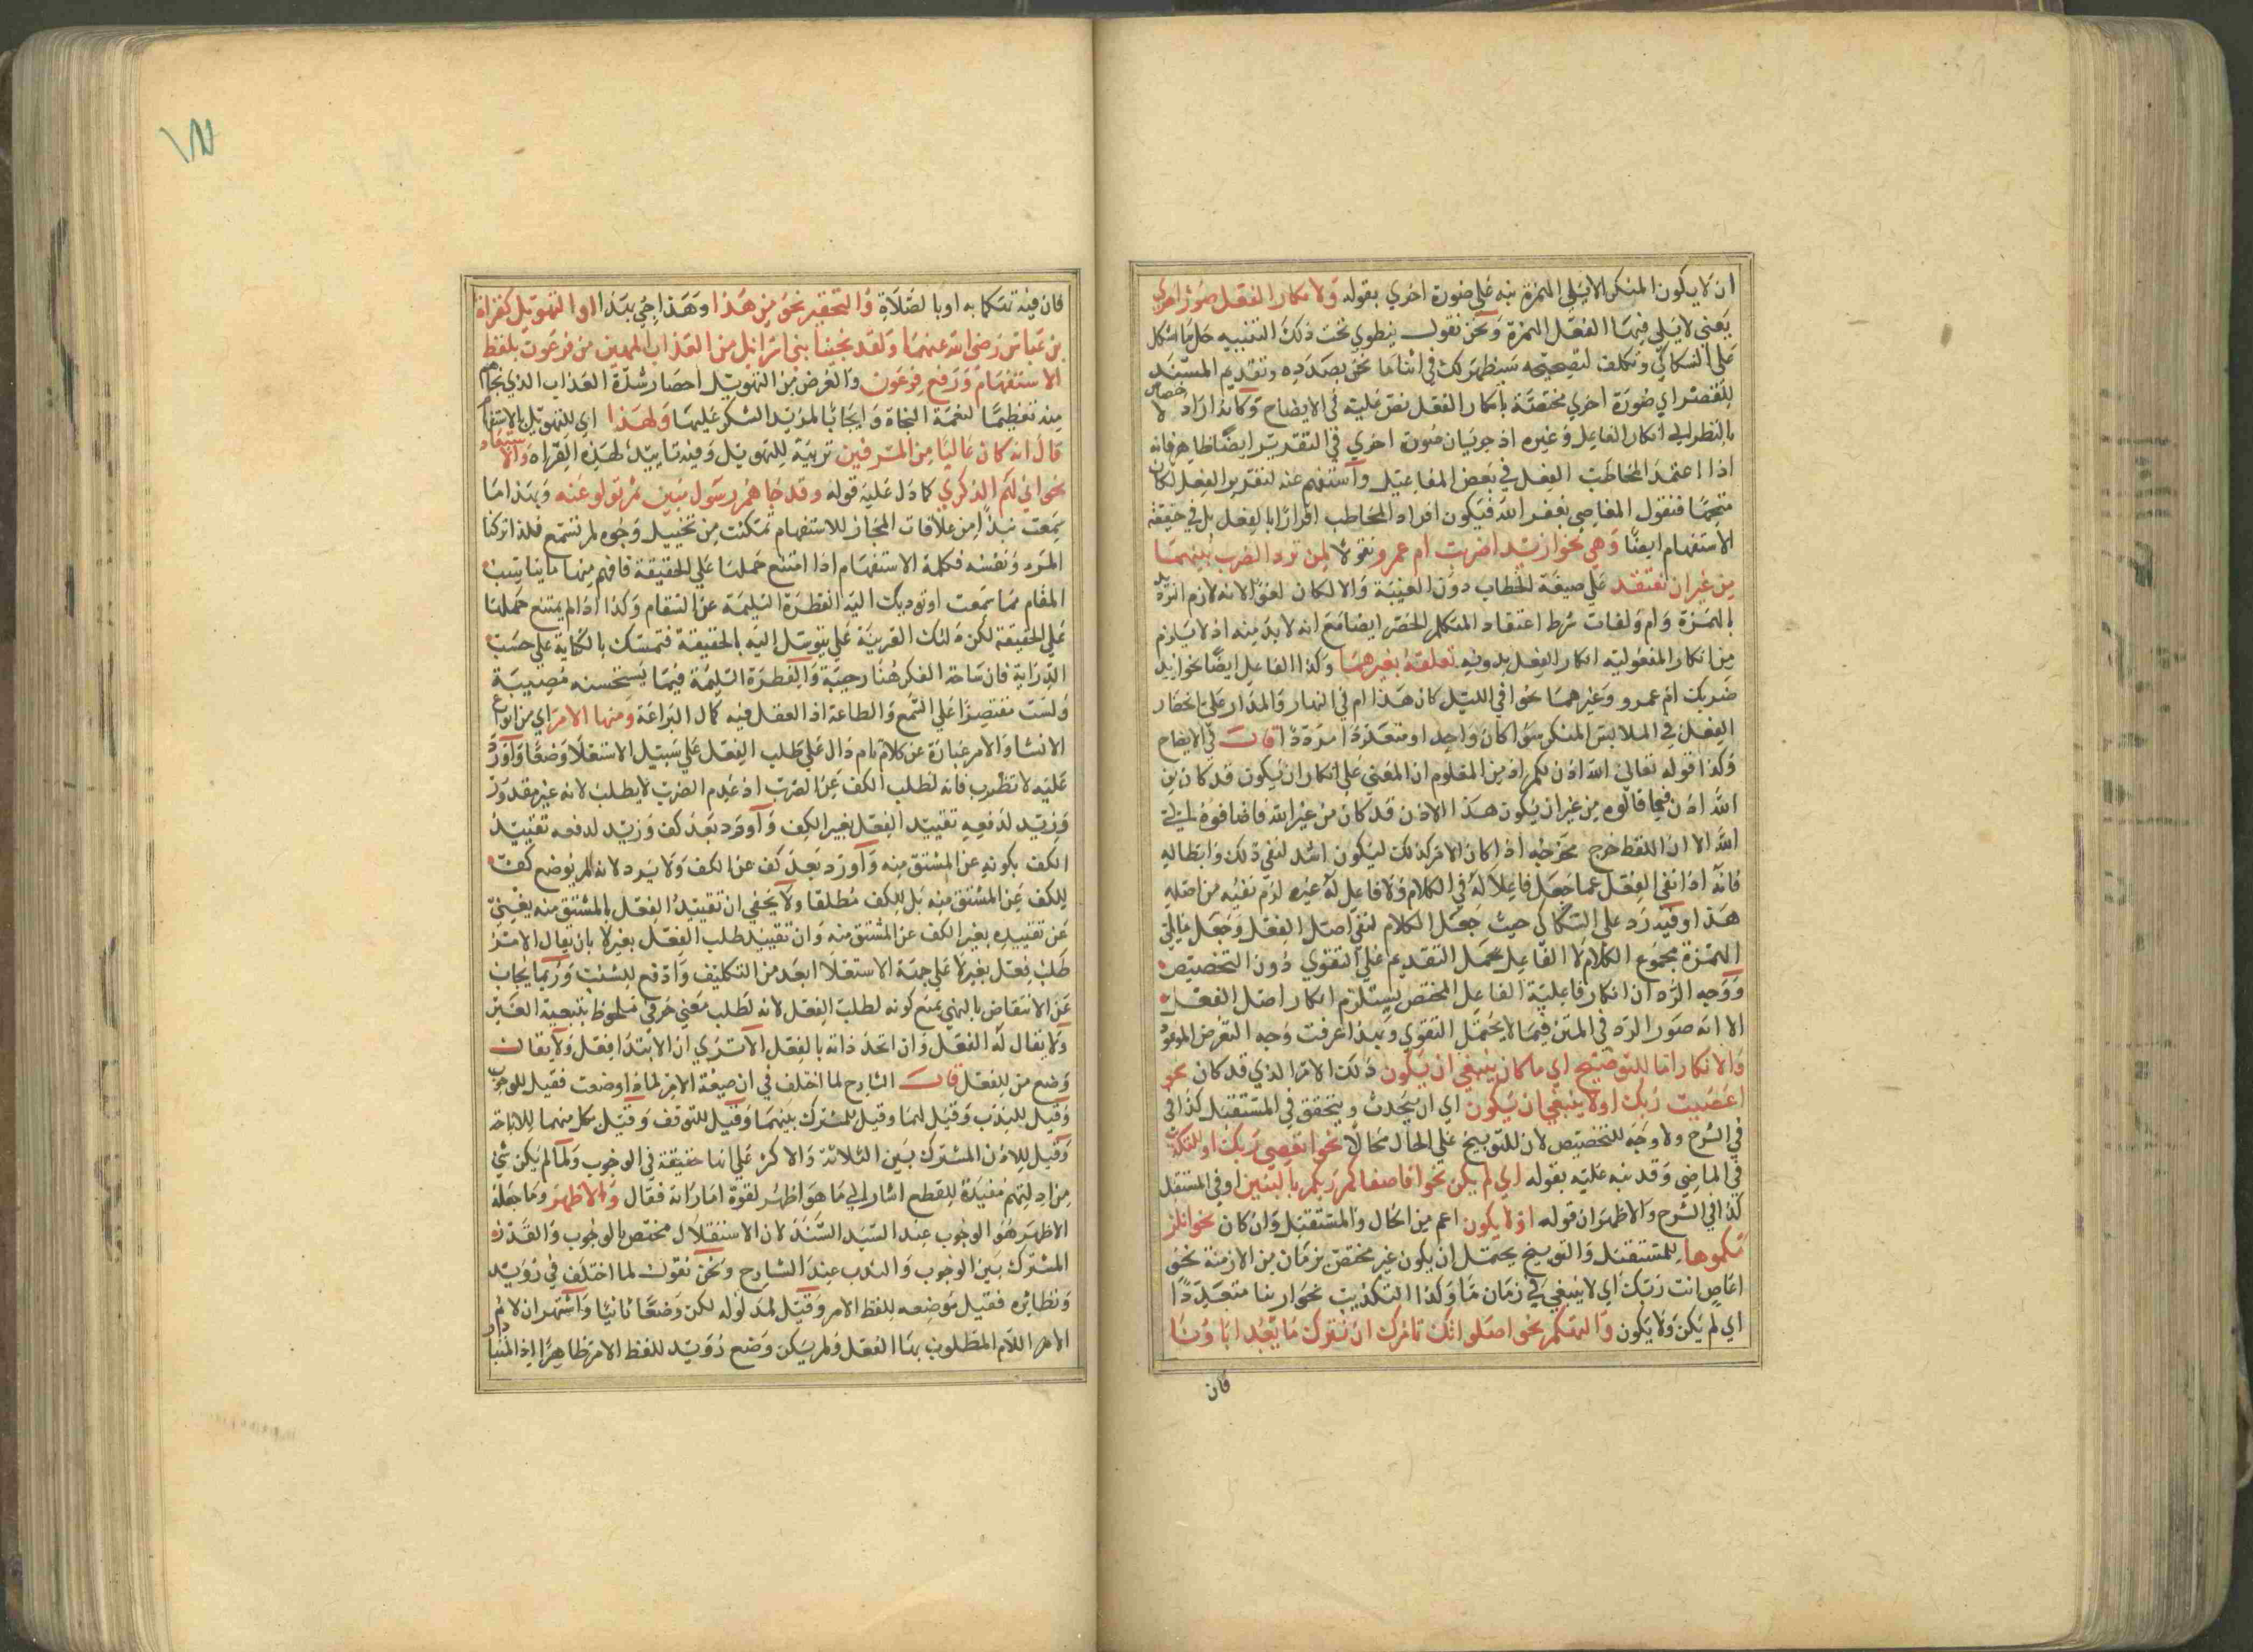 ان لا يكون المنكر الا يلي الهمزة نبه على صورة اخري بقوله ولانكار الفعل صورة اخري
يعني لا يلي فيها الفعل الهمزة ونحن نقول ينطوي تحت ذلك التنبيه حل ما اشكل
على السكاكي وتكلف لتصحيحه سيظهر لك في اثناء ما نحن بصدده وتقديم المسند
للقصر اي صورة اخري مختصة بانكار الفعل نص عليه في الايضاح وكانه اراد
بالنظر الى انكار الفاعل وغيره اذ جريان صورة اخري في التقدير ايضا ظاهر فانه
اذا اعتمد المخاطب الفعل في بعض المفاعيل واستفهم عنه لتقدير الفعل لكان
متجها فنقول المعاصي يغفر الله فيكون اقرار المخاطب اقرارا بالفعل بل في حقيقة
الاستفهام ايضا وهي نحو ازيدا ضربت ام عمرو نقولا لمن تردد الضرب بينهما
من غير ان تعتقد على صيغة الخطاب دون الغيبة والا لكان لغوا لانه لازم الترديد
بالهمزة وام ولفات شرط اعتقاد المتكلم الحصر ايضا مع انه لا بد منه اذ لا يلزم
من انكار المفعولية انكار الفعل بدونه تعلقه بغيرهما وكذا الفاعل ايضا نحو ازيد
ضربك ام عمرو وغيرهما نحو افي الليل كان هذا ام في النهار والمدار على انحصار
الفعل في الملابس المنكر سواء كان واحدا او متعددا مرددا قال في الايضاح
وكذا قوله تعالى الله اذن لكم اذ من المعلوم ان المعني على انكار ان يكون قد كان من
الله اذن فيما قالوه من غير ان يكون هذا الاذن قد كان من غير الله فاضافوه الى
الله الا ان اللفظ خرج مخرجه اذا كان الامر كذلك ليكون اشد لنفي ذلك وابطاله
فانه اذا نفي الفعل عما جعل فاعلا له في الكلام ولا فاعل له غيره لزم نفيه من اصله
هذا وفيه رد على السكاكي حيث جعل الكلام لنفي اصل الفعل وجعل ما يلي
الهمزة مجموع الكلام لا الفاعل بحمل التقديم على التقوي دون التخصيص
ووجه الرد ان انكار فاعلية الفاعل المختص يستلزم انكار اصل الفعل
الا انه صور الرد في المتن فيما لا يحتمل التقوي وبهذا عرفت وجه التعرض الموعود
والانكار اما للتوضيح اي ما كان ينبغي ان يكون ذلك الامر الذي قد كان نحو
اعصيت ربك او لا ينبغي ان يكون اي ان يحدث ويتحقق في المستقبل كذا في
في الشرح ولا وجه للتخصيص لان للتوبيخ على الحال مجالا نحو اتعصي ربك او للتكذيب
في الماضي وقد نبه عليه بقوله اي لم يكن نحو افاصفاكم ربكم بالبنين او في المستقبل
كذا في الشرح والاظهر ان قوله او لا يكون اعم من الحال والمستقبل وان كان نحو انلز
مكموها للمستقبل والتوبيخ يحتمل ان يكون غير مختص بزمان من الازمنة نحو
اعاص انت ربك اي لا ينبغي في زمان ما وكذا التكذيب نحو اربنا متعددا
اي لم يكن ولا يكون والتهكم نحو اصلواتك تامرك ان نترك ما يعبد اباؤنا
فان
فان فيه تهكما به او بالصلاة والتحقير نحو من هذا وهذا جئ بهذا او التهويل كقراة
بن عباس رضي الله عنهما ولقد نجينا بني اسرائيل من العذاب المهين من فرعون بلفظ
الاستفهام ورفع فرعون والغرض من التهويل احضار شدة العذاب الذي نجاهم
منه تعظيما لنعمة النجاة وايجابا لمزيد الشكر عليها ولهذا اي للتهويل بالاستفهام
قال انه كان عاليا من المسرفين تربية للتهويل وفيه تاييد لهذه القراه والاستبعاد
نحو اني لهم الذكري كما دل عليه قوله وقد جاهم رسول مبين ثم تولو عنه وبهذا ما
سمعت نبذا من علاقات المجاز للاستفهام تمكنت من تخييل وجوه لم تسمع فلذا تركنا
المرد ونفسه فكلمة الاستفهام اذا امتنع حملها على الحقيقة فافهم منها ما يناسب
المقام مما سمعت او توديك اليه الفطرة السليمة عن السقام وكذا اذا لم يمتنع حملها
على الحقيقة لكن دلتك القرينة على يتوسل اليه بالحقيقة فتمسك بالكناية على حسب
الدراية فان ساحة الفكر هنا رحيبة والفطرة السليمة فيما يستحسنه مصيبة
ولست مقتصرا على السمع والطاعة اذ العقل فيه كمال البراعة ومنها الامر اي من انواع
الانشا والامر عبارة عن كلام تام دال على طلب الفعل على سبيل الاستعلا وضعا واورد
عليه لا تضرب فانه لطلب الكف عن الضرب اذ عدم الضرب لا يطلب لانه غير مقدور
وزيد لدفعه تقييد الفعل بغير الكف واورد بعد كف وزيد لدفعه تقييد
الكف بكونه عن المشتق منه واورد بعد كف عن الكف ولا يرد لانه لم يوضع كف
للكف عن المشتق منه بل للكف مطلقا ولا يخفي ان تقييد الفعل بالمشتق منه يغني
عن تقييده بغير الكف عن المشتق منه وان تقييد طلب الفعل بغير لا بان يقال الامر
طلب فعل بغير لا على جهة الاستعلا ابعد من التكليف وادفع للشبه وربما يجاب
عن الانتقاض بالنهي بمنع كونه لطلب الفعل لانه لطلب معني حرفي ملحوظ بتبعية الغير
ولا يقال له الفعل وان اتحد ذاته بالفعل الا تري ان الابتدا فعل ولا يقال
وضع من للفعل قال الشارح لما اختلف في ان صيغة الامر لماذا وضعت فقيل للوجوب
وقيل للندب وقيل لهما وقيل للمشترك بينهما وقيل للتوقف وقيل بكل منهما للاباحة
وقيل للاذن المشترك بين الثلاثة والاكثر على انها حقيقة في الوجوب ولما لم يكن شي
من ادلتهم مفيدة للقطع اشار الى ما هو اظهر لقوة اماراته فقال والاظهر وما جعله
الاظهر هو الوجوب عند السيد السند لان الاستعلال مختص بالوجوب والقدر
المشترك بين الوجوب والندب عند الشارح ونحن نقول لما اختلف في رويد
ونظائره فقيل موضعه للفظ الامر وقيل لمدلوله لكن وضعا ثانيا واشتهر ان لام
الامر اللام المطلوب بها الفعل ولم يكن وضع رويد للفظ الامر ظاهرا اذ المتبادر